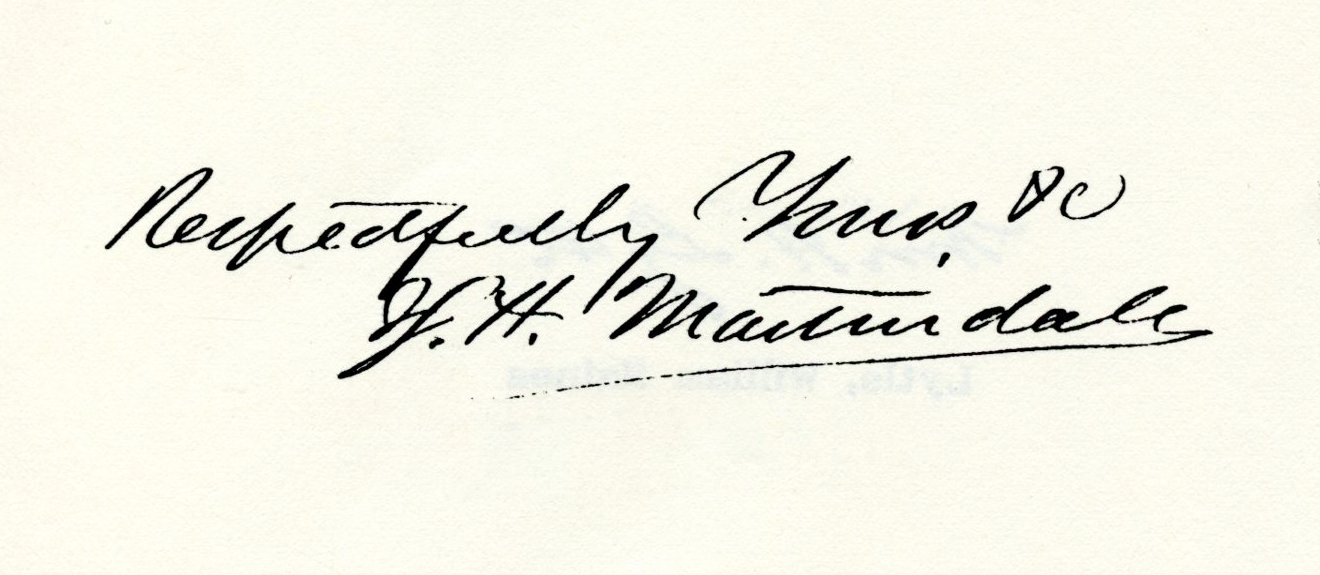 Respectfully Yours &c
J. H. Martindale